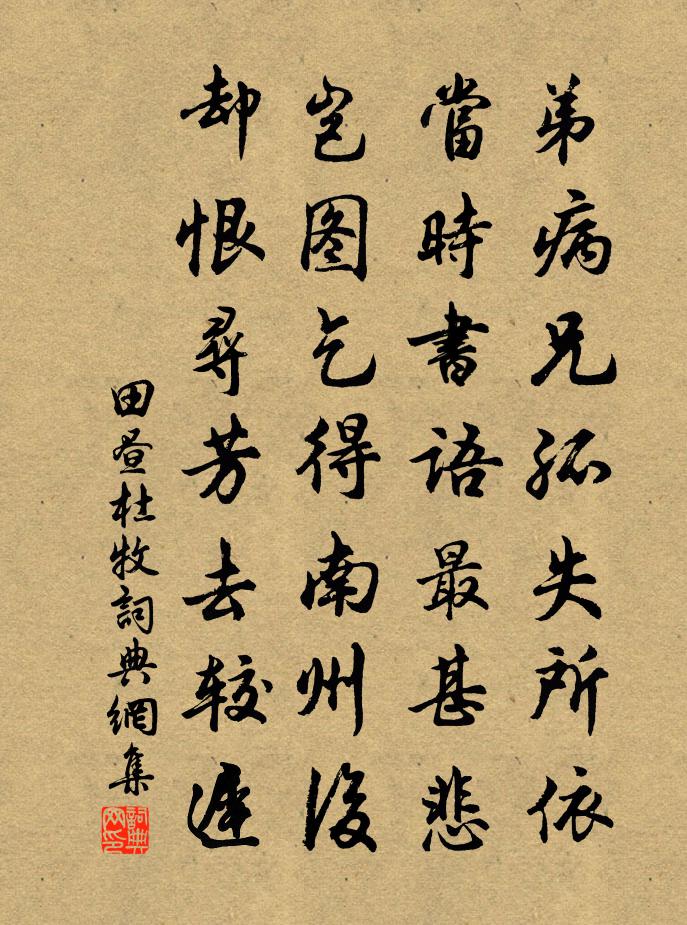 弟病兄孤失所依
當時書語最甚悲
岂图乞得南州後
却恨尋芳去较遲
田昼杜牧詞典網集
詞典网印